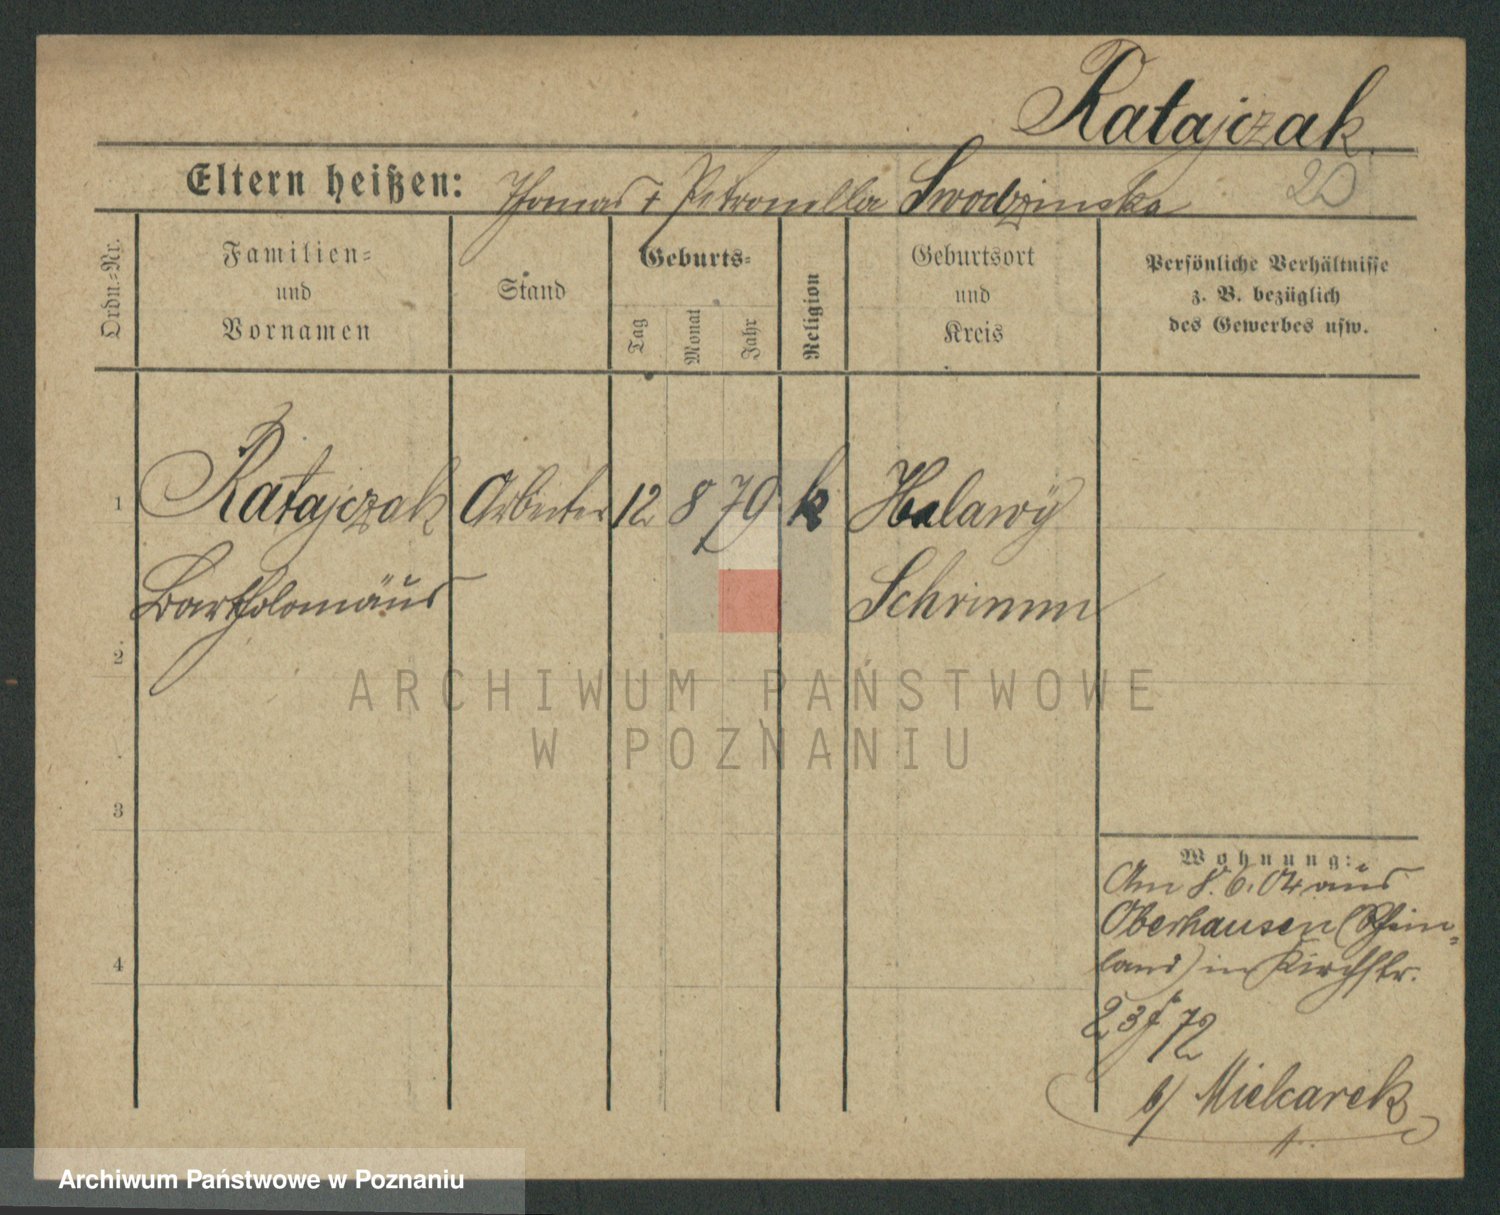 Ratajczak.
20
Eltern heißen: Thomas + Petronella Swodzinska
Ordn.-Nr.
Familien-
und
Vornamen
Stand
Geburts-
Tag
Monat
Jahr
Religion
Geburtsort
und
Kreis
Persönliche Verhältnisse
z. B. bezüglich
des Gewerbes usw.
1 Ratajczak Arbeiter 12 8 79 k Halawy
Bartholomäus Schrimm
2
ARCHIWUM PAŃSTWOWE
W POZNANIU
3
Wohnung:
Am 8. 6. 04 aus
Oberhausen (Rhein-
4 land) in Kirchstr.
72
b/ Miekarek
Archiwum Państwowe w Poznaniu